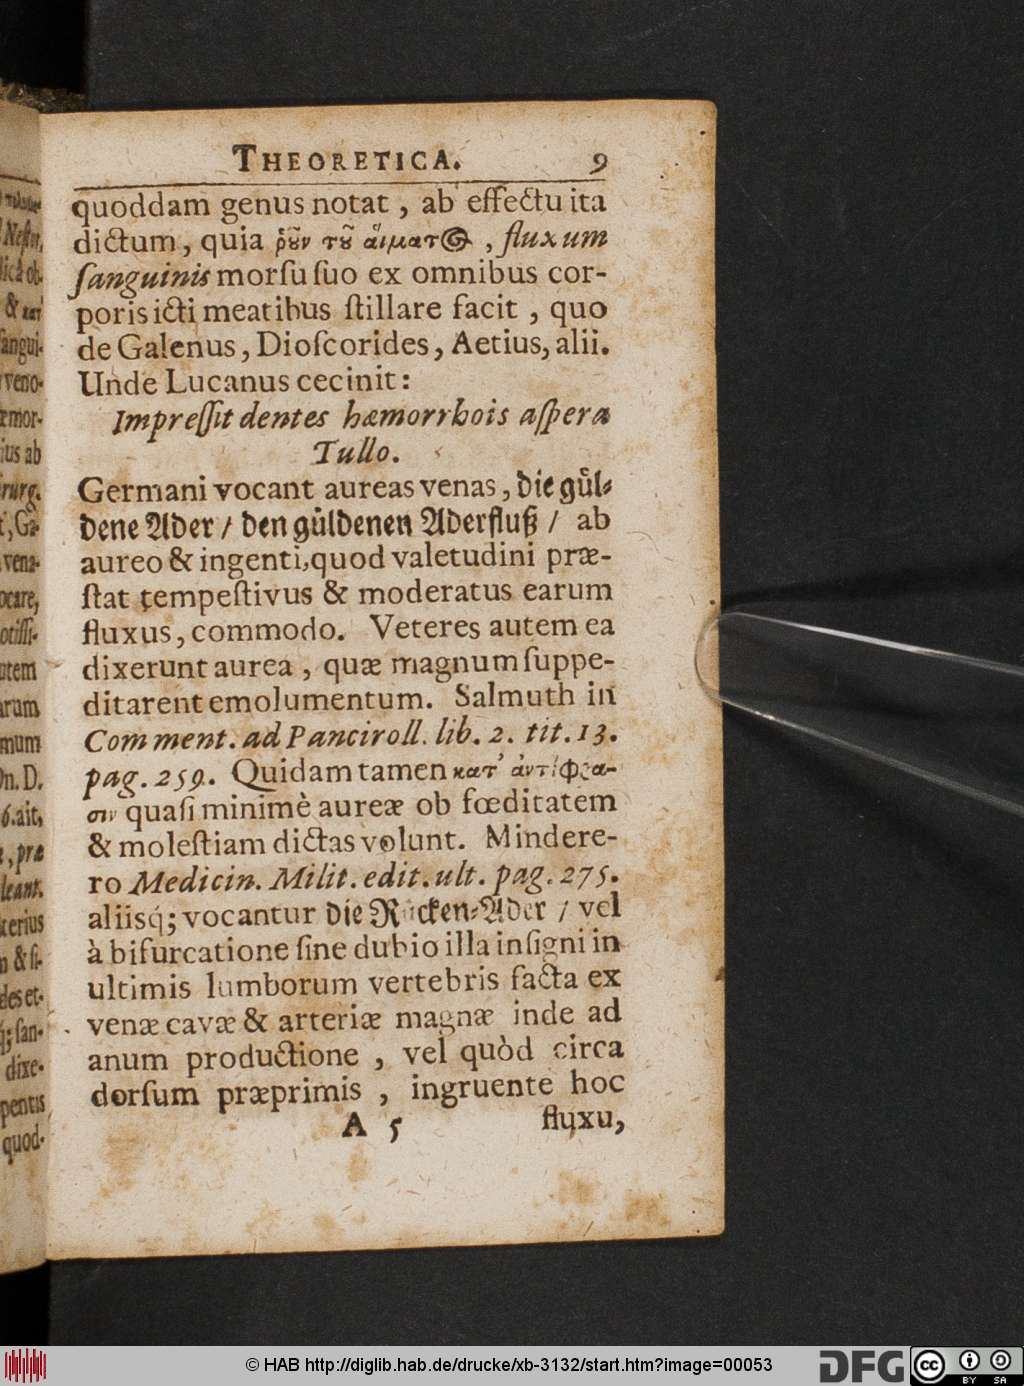 THEORETICA. 9
quoddam genus notat, ab effectu ita
dictum, quia ῥȣ͂ν τȣ͂ αἵματ , fluxum
ſanguinis morſu ſuo ex omnibus cor-
poris icti meatibus ſtillare facit, quo
de Galenus, Dioſcorides, Aetius, alii.
Unde Lucanus cecinit:
Impreſſit dentes hæmorrhois aſpera
Tullo.
Germani vocant aureas venas, die gůl-
dene Ader / den gůldenen Aderfluß / ab
aureo & ingenti, quod valetudini præ-
ſtat tempeſtivus & moderatus earum
fluxus, commodo. Veteres autem ea
dixerunt aurea, quæ magnum ſuppe-
ditarent emolumentum. Salmuth in
Comment. ad Panciroll. lib. 2. tit. 13.
pag. 259. Quidam tamen κατ’ ἀντίφρα-
σιν quaſi minimè aureæ ob fœditatem
& moleſtiam dictas volunt. Mindere-
ro Medicin. Milit. edit. ult. pag. 275.
aliisq́; vocantur die Rücken-Ader / vel
à bifurcatione ſine dubio illa inſigni in
ultimis lumborum vertebris facta ex
venæ cavæ & arteriæ magnæ inde ad
anum productione, vel quòd circa
dorſum præprimis, ingruente hoc
A 5 fluxu,
Neſtor,
& κατ’
ſangui-
veno-
ius ab
vena-
ocare,
otiſſi-
utem
arum
mum
On. D.
6. ait,
, præ
leant.
terius
n & ſi-
des et-
q́; ſan-
dixe-
pentis
quod-
© HAB http://diglib.hab.de/drucke/xb-3132/start.htm?image=00053
DFG
cc BY SA